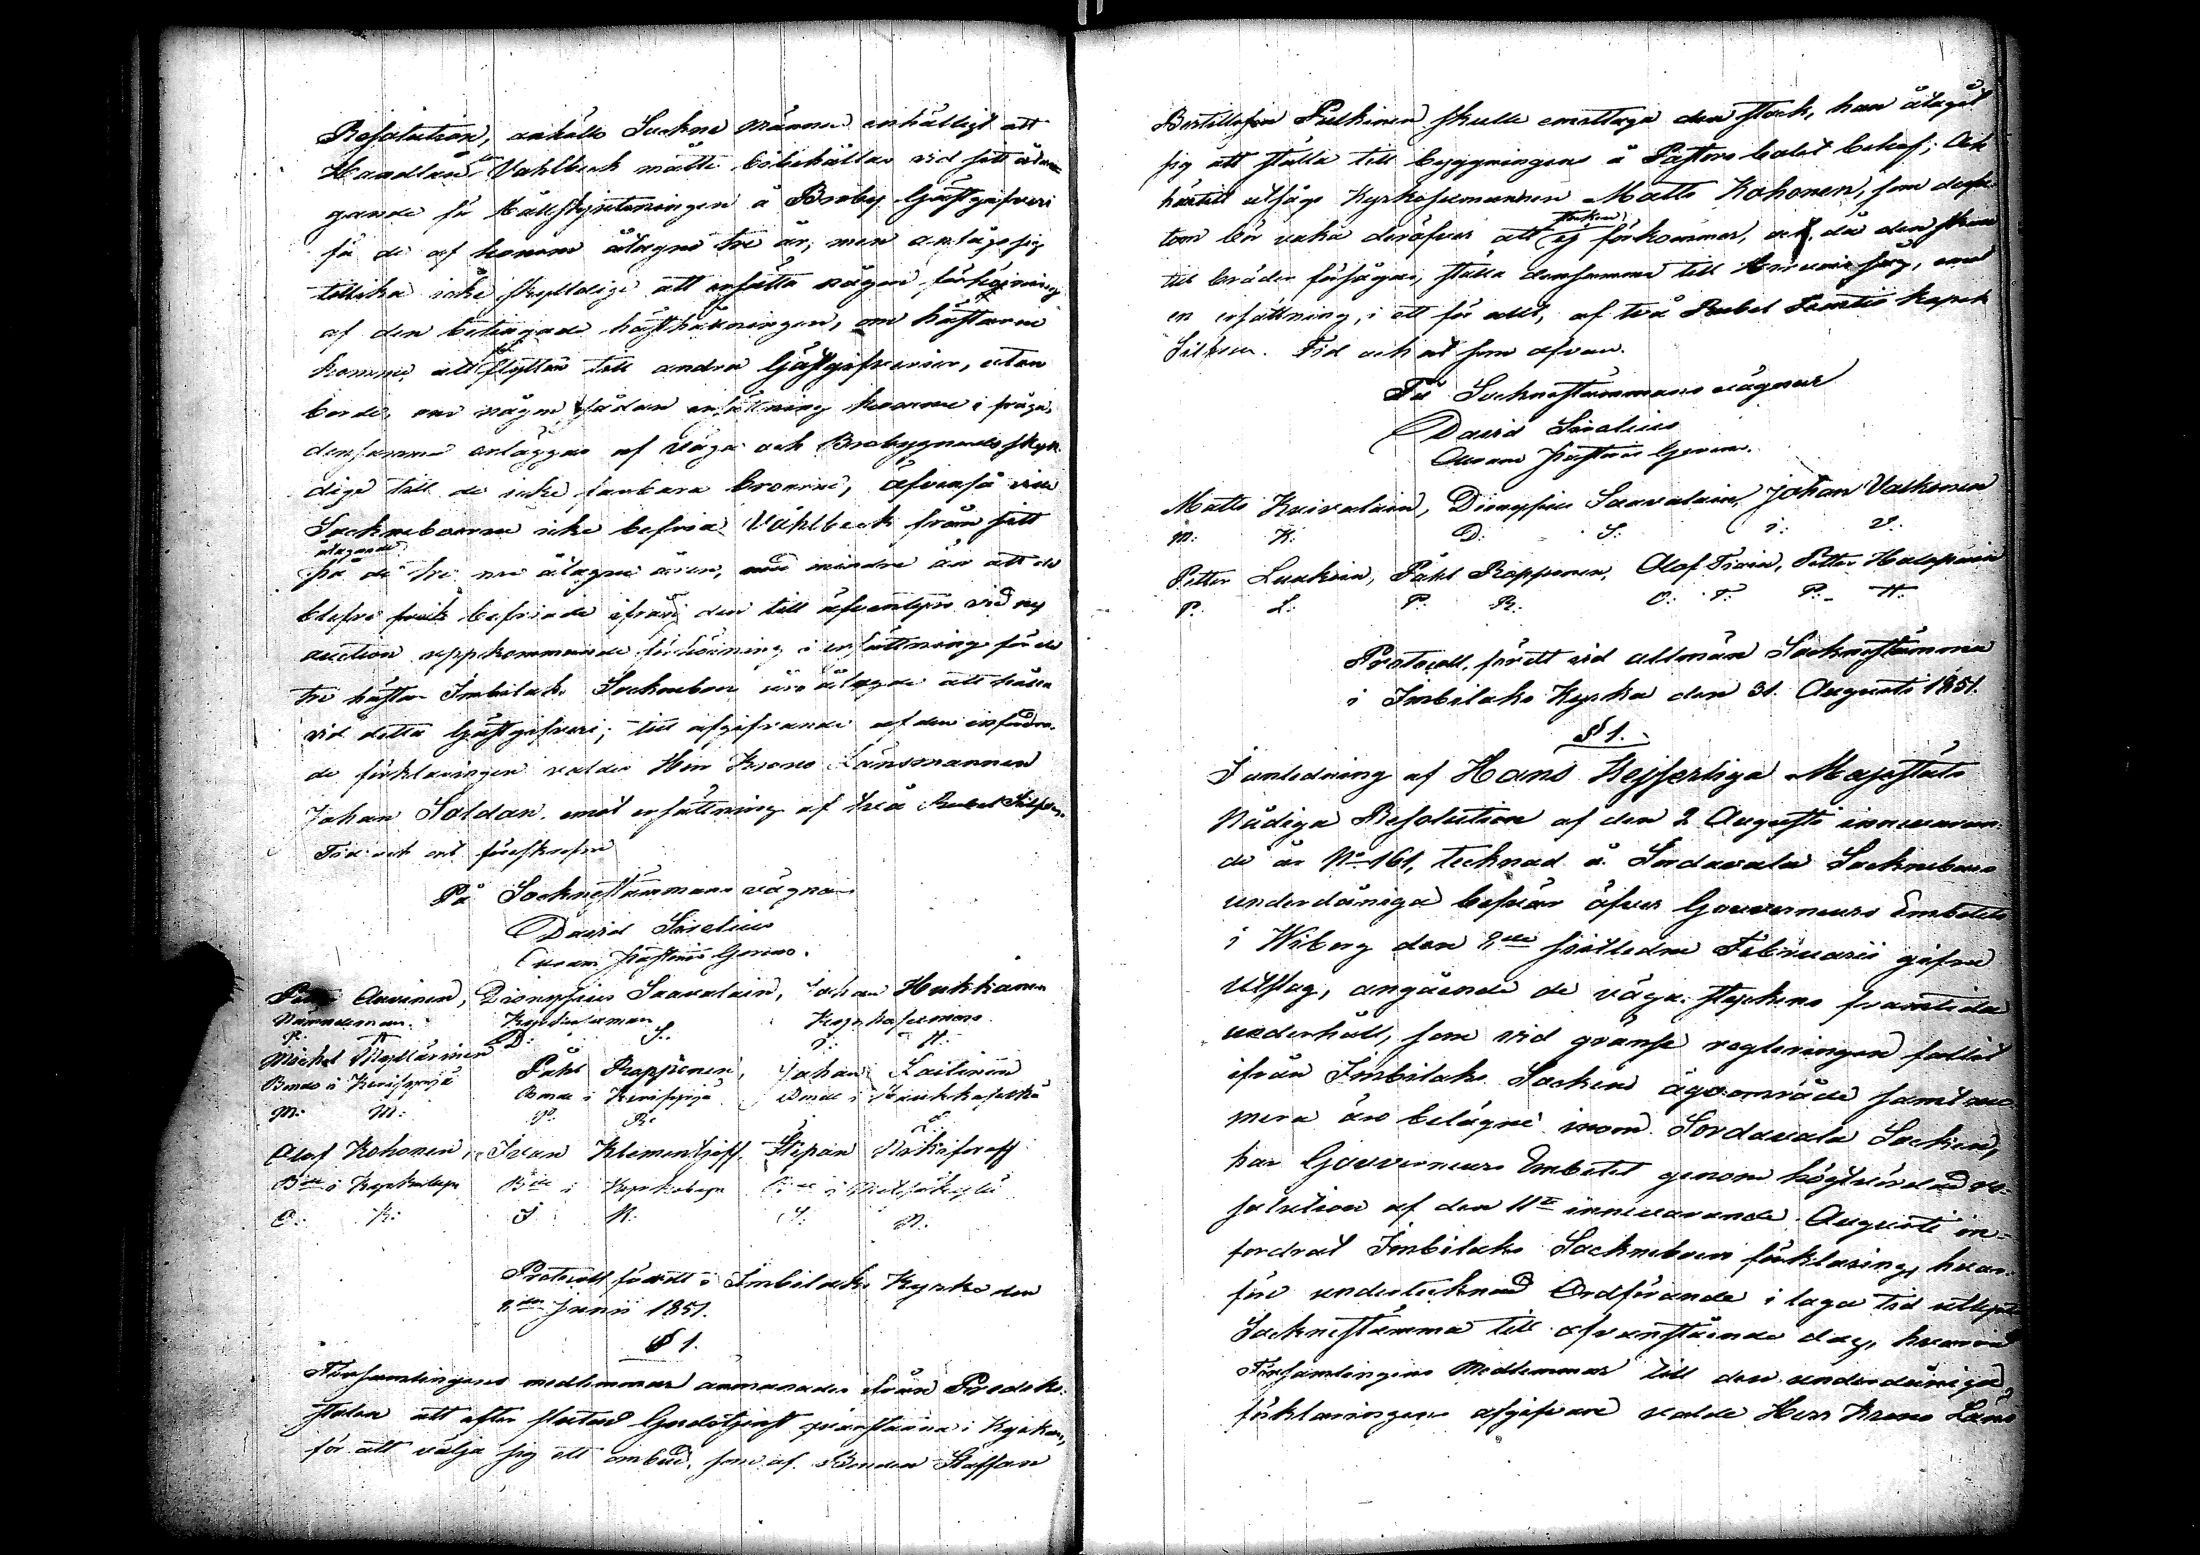 Resolution, anhålla Sockne männen enhälligt att
Handlan Vahlbeck måtte bibehållas vid sitt åta-
gande för hållskjutsningen å Broby Gästgifveri
få de af honom åtagne tre år, men ansågo sig
tillika icke skyldige att ersätta någon förhöjning
af den betingade hästhållningen, om hästarne
komme att flyttas till andra Gästgifverier, utan
borde, om någon sådan ersättning komme i fråga,
densamma anläggas af väga och Brobyggnads skyl-
dige till de icke farbara broarne, äfvenså vill
Sockneboerne icke befria Vahlbeck från sitt
åtagande
på de tre nu åtagne åren, med mindre än att de
blefve befriade ifrån den till äfventyrs vid ny
auction uppkommande förhöjning i ersättning för de
tre hästar Imbilaks Sockneboer äro ålagde att hålla
vid detta Gästgifveri; till afgifvande af den infordra-
de förklaringen valdes Herr Krono Länsmannen
Johan Soldan emot ersättning af två Rubel Silfver.
Tid och ort föreskrefne
På Socknestämmans vägnar
David Sirelius
Petter Auvinen, Dionysius Saavalain, Johan Hukkanen
Nämndeman. Kyrkosexman Kyrkosexman
P. A. D: S. J: H:
Michel Myllärinen Påhl Rapponen, Johan Laitinen
Bonde i Kirisyrjä Bonde i Kirisyrjä Bonde i
M: M: P: R: L:
Olof Kohonen, Ivan Klementjeff Stepan Nikiforoff
Bde i Kyrkobyn Bde i Kyrkobyn Bde i
O: K: I K: S: N:
Protocoll fördt i Imbilaks Kyrka den
9de Junii 1851.
§ 1.
Församlingens medlemmar anmanades ifrån Prediko-
stolen att efter slutad Gudstjenst qvarstanna i Kyrkan,
för att välja sig ett ombud, som af Bonden Staffan
Bertillsson Pulkinen skulle emottaga den stock, han åtagit
sig att ställa till byggningens å Pastors bolet behof; Och
härtill utsågs Kyrkosexmannen Matts Kohonen, som dess-
stocken
tom bör vaka deröfver att ej förkommer, och då den skall
till bräder försågas, ställa densamma till såg, emot
en ersättning, i ett för allt, af två Rubel Femtio Kopek
Silfver. Tid och ort som ofvan.
På Socknestämmans vägnar
David Sirelius
Matts Kuivalain, Dionysius Saavalain, Johan Valkonen
M: K: D: S: J: V:
Petter Luukain, Påhl Rapponen, Olof Tiain, Petter Halopain
P. L: P. R: O: T: P: H:
Protocoll, fördt vid allmän Socknestämma
i Imbilaks Kyrka den 31. Augusti 1851.
§ 1.
I anledning af Hans Kejserliga Majestäts
Nådiga Resolution af den 2 Augusti innevaran-
de år No 161, tecknad å Sordavala Sockneboers
underdåniga besvär öfver Gouverneurs Embetets
i Wiborg den sistledne Februarii gifne
Utslag, angående de väga styckens framtida
underhåll, som vid gränse regleringen fallit
ifrån Imbilaks Sockens ägoområde samt nu-
mera äro belägne inom Sordavala Socken,
har Gouverneurs Embetet genom högtvördad re-
solution af den 11te innevarande Augusti in-
fordrat Imbilaks Sockneboers förklaring, hvar-
före undertecknad Ordförande i laga tid utlyst
Socknestämma till ofvanstående dag, hvarvid
Församlingens Medlemmar till den underdåniga
förklaringens afgifvare valde Herr Krono Läns